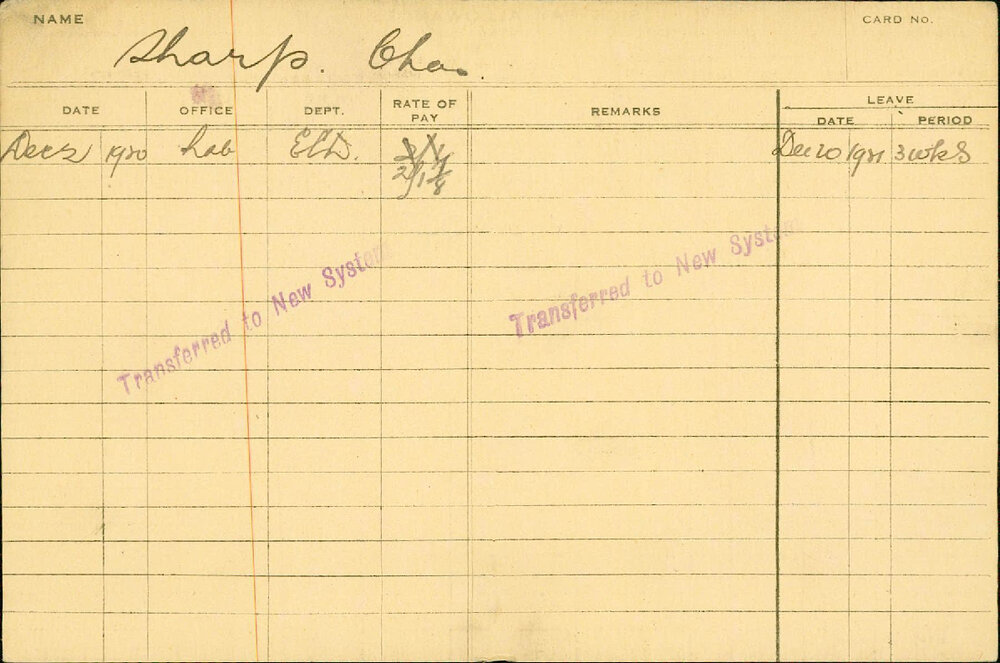 NAME
CARD No.
Sharp. Chas.
DATE OFFICE DEPT. RATE OF PAY REMARKS LEAVE
DATE PERIOD
Dec 2 1920 Lab ELD. Dec 20 1921 3 wks
2/1
Transferred to New System
Transferred to New System